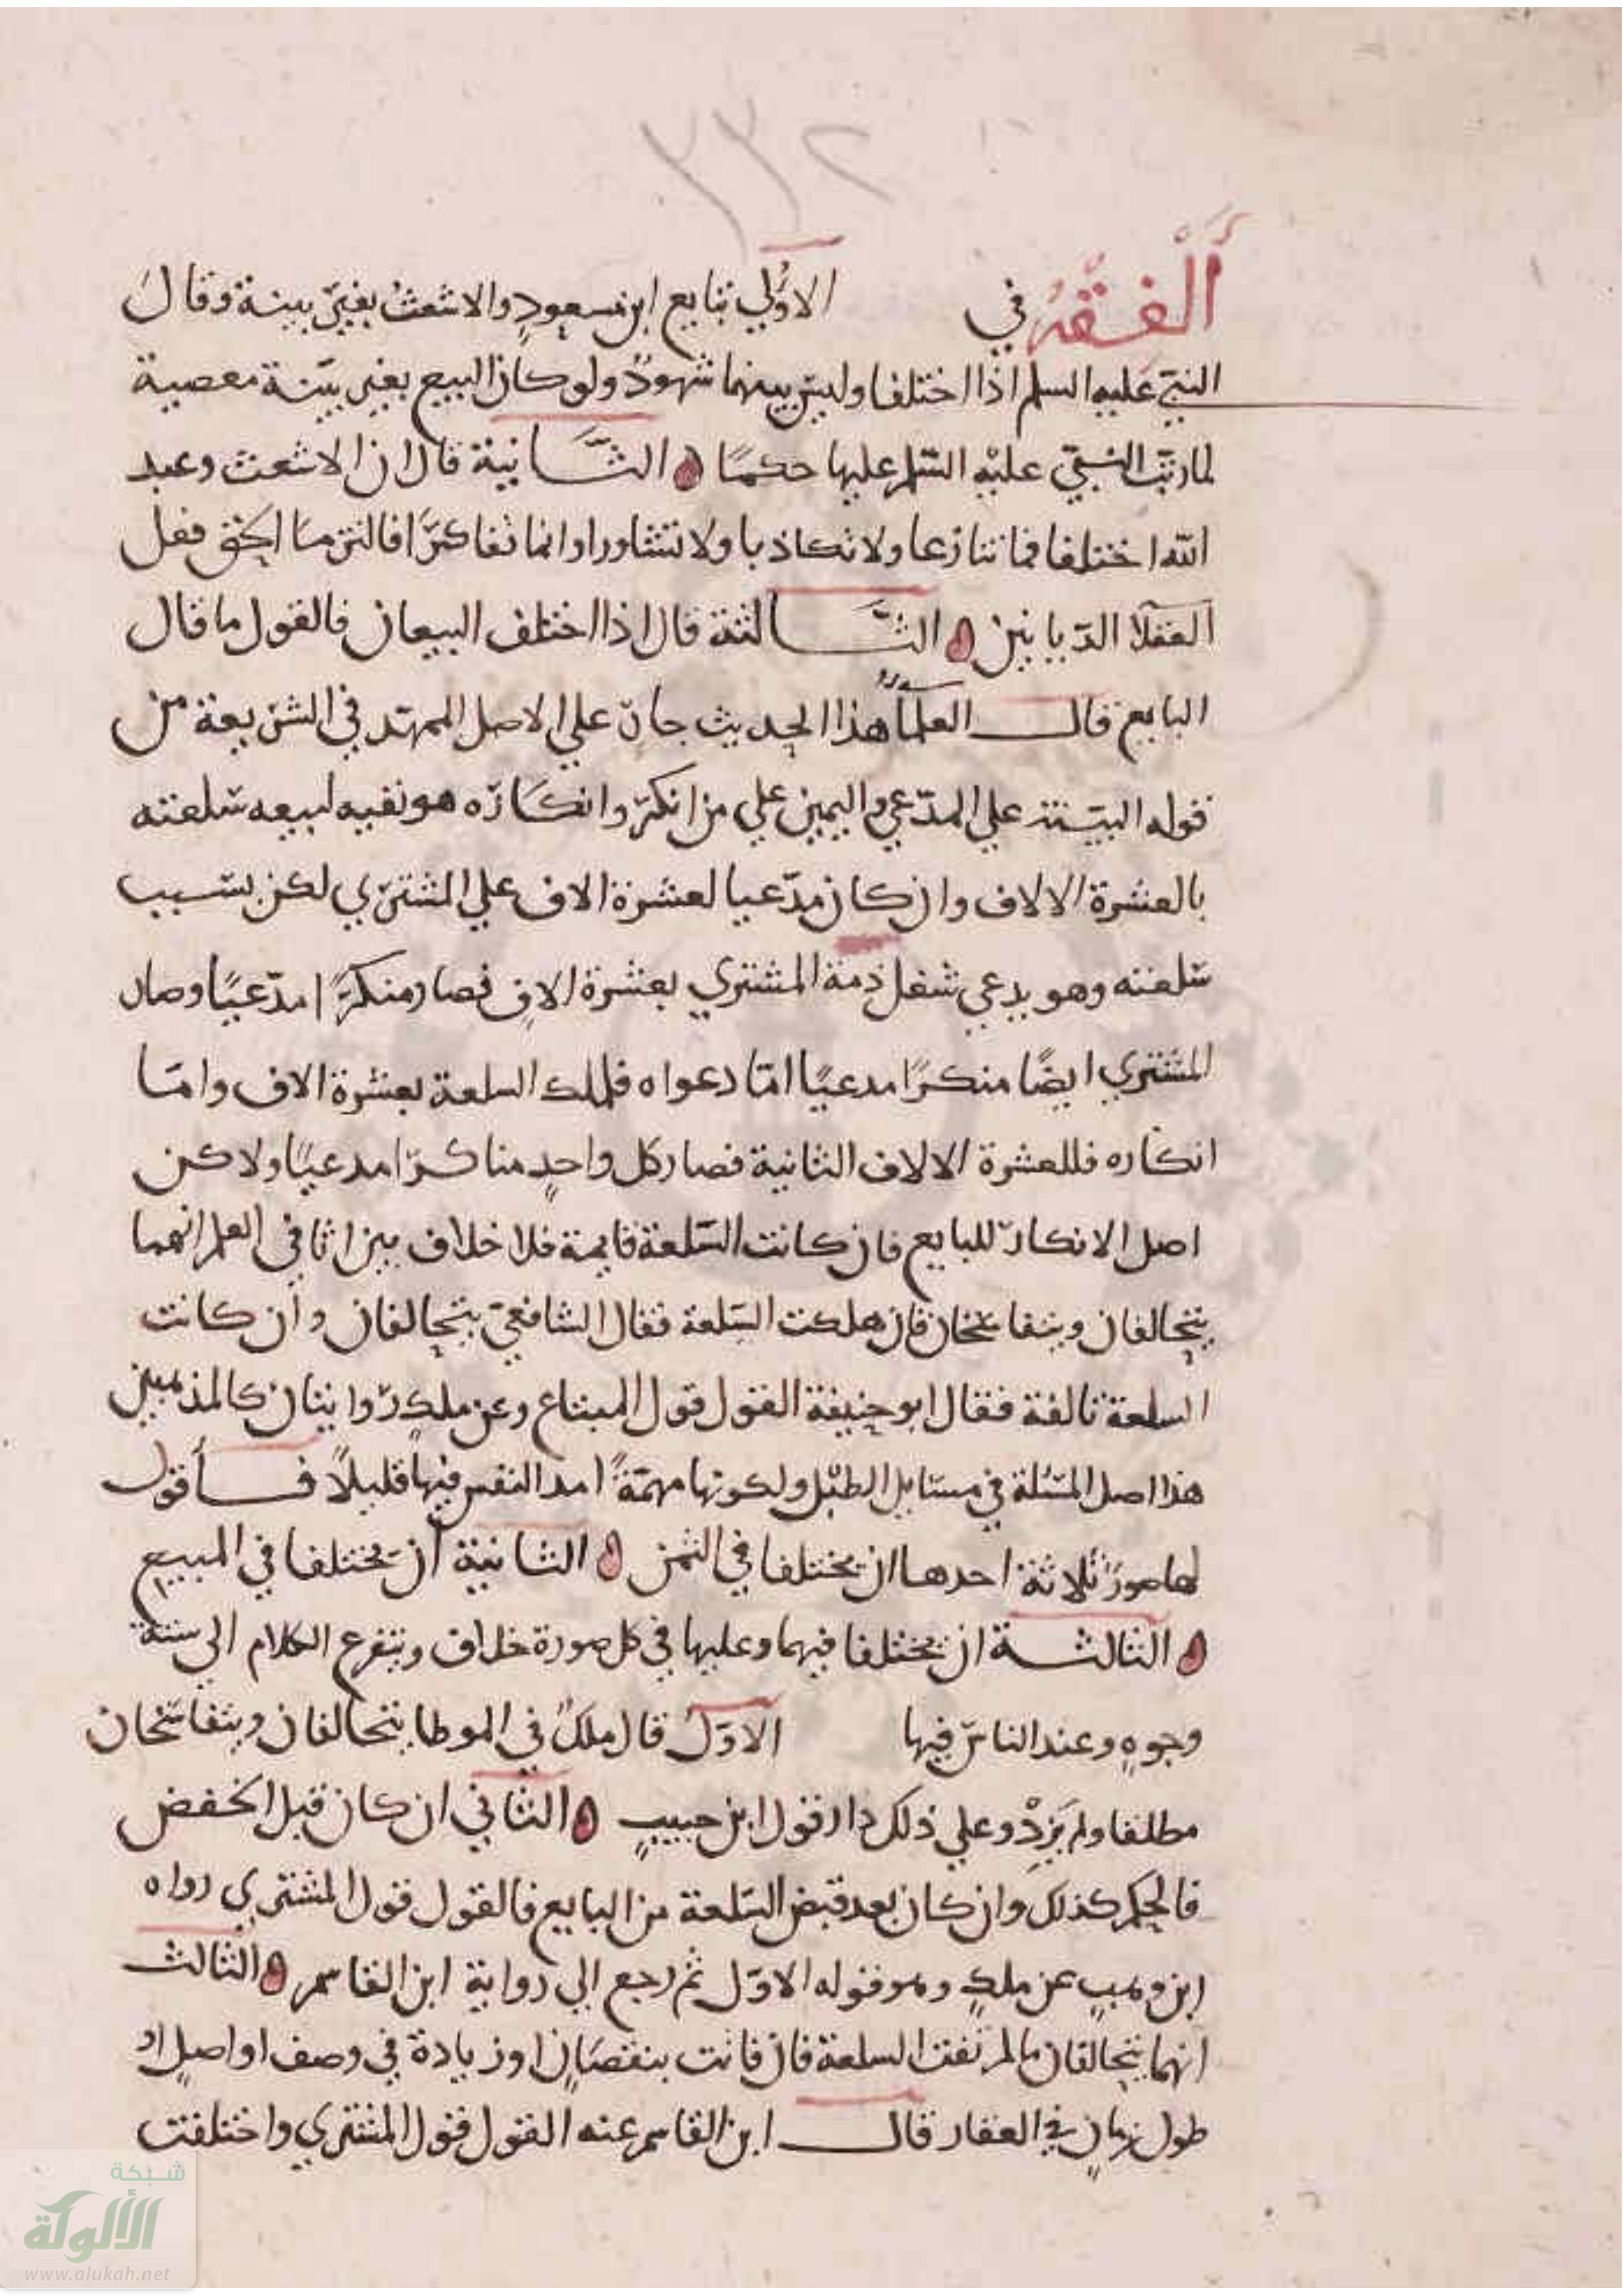 ٢٢٢
الفقه في الاولي تبايع ابن مسعود والاشعث بغير بينة وقال
النبي عليه السلم اذا اختلفا وليس بينهما شهود ولو كان البيع بغير بينة معصية
لما رتب النبي عليه السلم عليها حكما الثانية قال ان الاشعث وعبد
الله اختلفا فما تنازعا ولا تكاذبا ولا تشاورا وانما تفاكرا فالتزما الحق فعل
العقلا الديانين الثالثة قال اذا اختلف البيعان فالقول ما قال
البايع قال العلما هذا الحديث جار علي الاصل الممهد في الشريعة من
قوله البينة علي المدعي واليمين علي من انكر وانكاره هو نفيه لبيعه سلعته
بالعشرة الالاف وان كان مدعيا لعشرة الاف علي المشتري لكن بسبب
سلعته وهو يدعي شغل ذمة المشتري بعشرة الاف فصار منكرا مدعيا وصار
المشتري ايضا منكرا مدعيا اما دعواه فلملك السلعة بعشرة الاف واما
انكاره فللعشرة الالاف الثانية فصار كل واحد مناكرا مدعيا ولاكن
اصل الانكار للبايع فان كانت السلعة قايمة فلا خلاف بين اثافي العلم انهما
يتحالفان ويتفاسخان فان هلكت السلعة فقال الشافعي يتحالفان وان كانت
السلعة تالفة فقال ابو حنيفة القول قول المبتاع وعن ملك روايتان كالمذهبين
هذا اصل المسئلة في مسايل الطبل ولكونها مهمة امد النفس فيها قليلا فأقول
لها صور ثلاثة احدها ان يختلفا في الثمن الثانية ان يختلفا في المبيع
الثالثة ان يختلفا فيهما وعليها في كل صورة خلاف ويتفرع الكلام الي ستة
وجوه وعند الناس فيها الاول قال ملك في الموطا يتحالفان ويتفاسخان
مطلقا ولم يزد وعلي ذلك دار قول ابن حبيب الثاني ان كان قبل الخفض
فالحكم كذلك وان كان بعد قبض السلعة من البايع فالقول قول المشتري رواه
ابن وهب عن ملك وهو قوله الاول ثم رجع الي رواية ابن القاسم الثالث
انهما يتحالفان ما لم تفت السلعة فان فاتت بنقصان او زيادة في وصف او اصل او
طول زمان في العقار قال ابن القاسم عنه القول قول المشتري واختلفت
شبكة
الألوكة
www.alukah.net